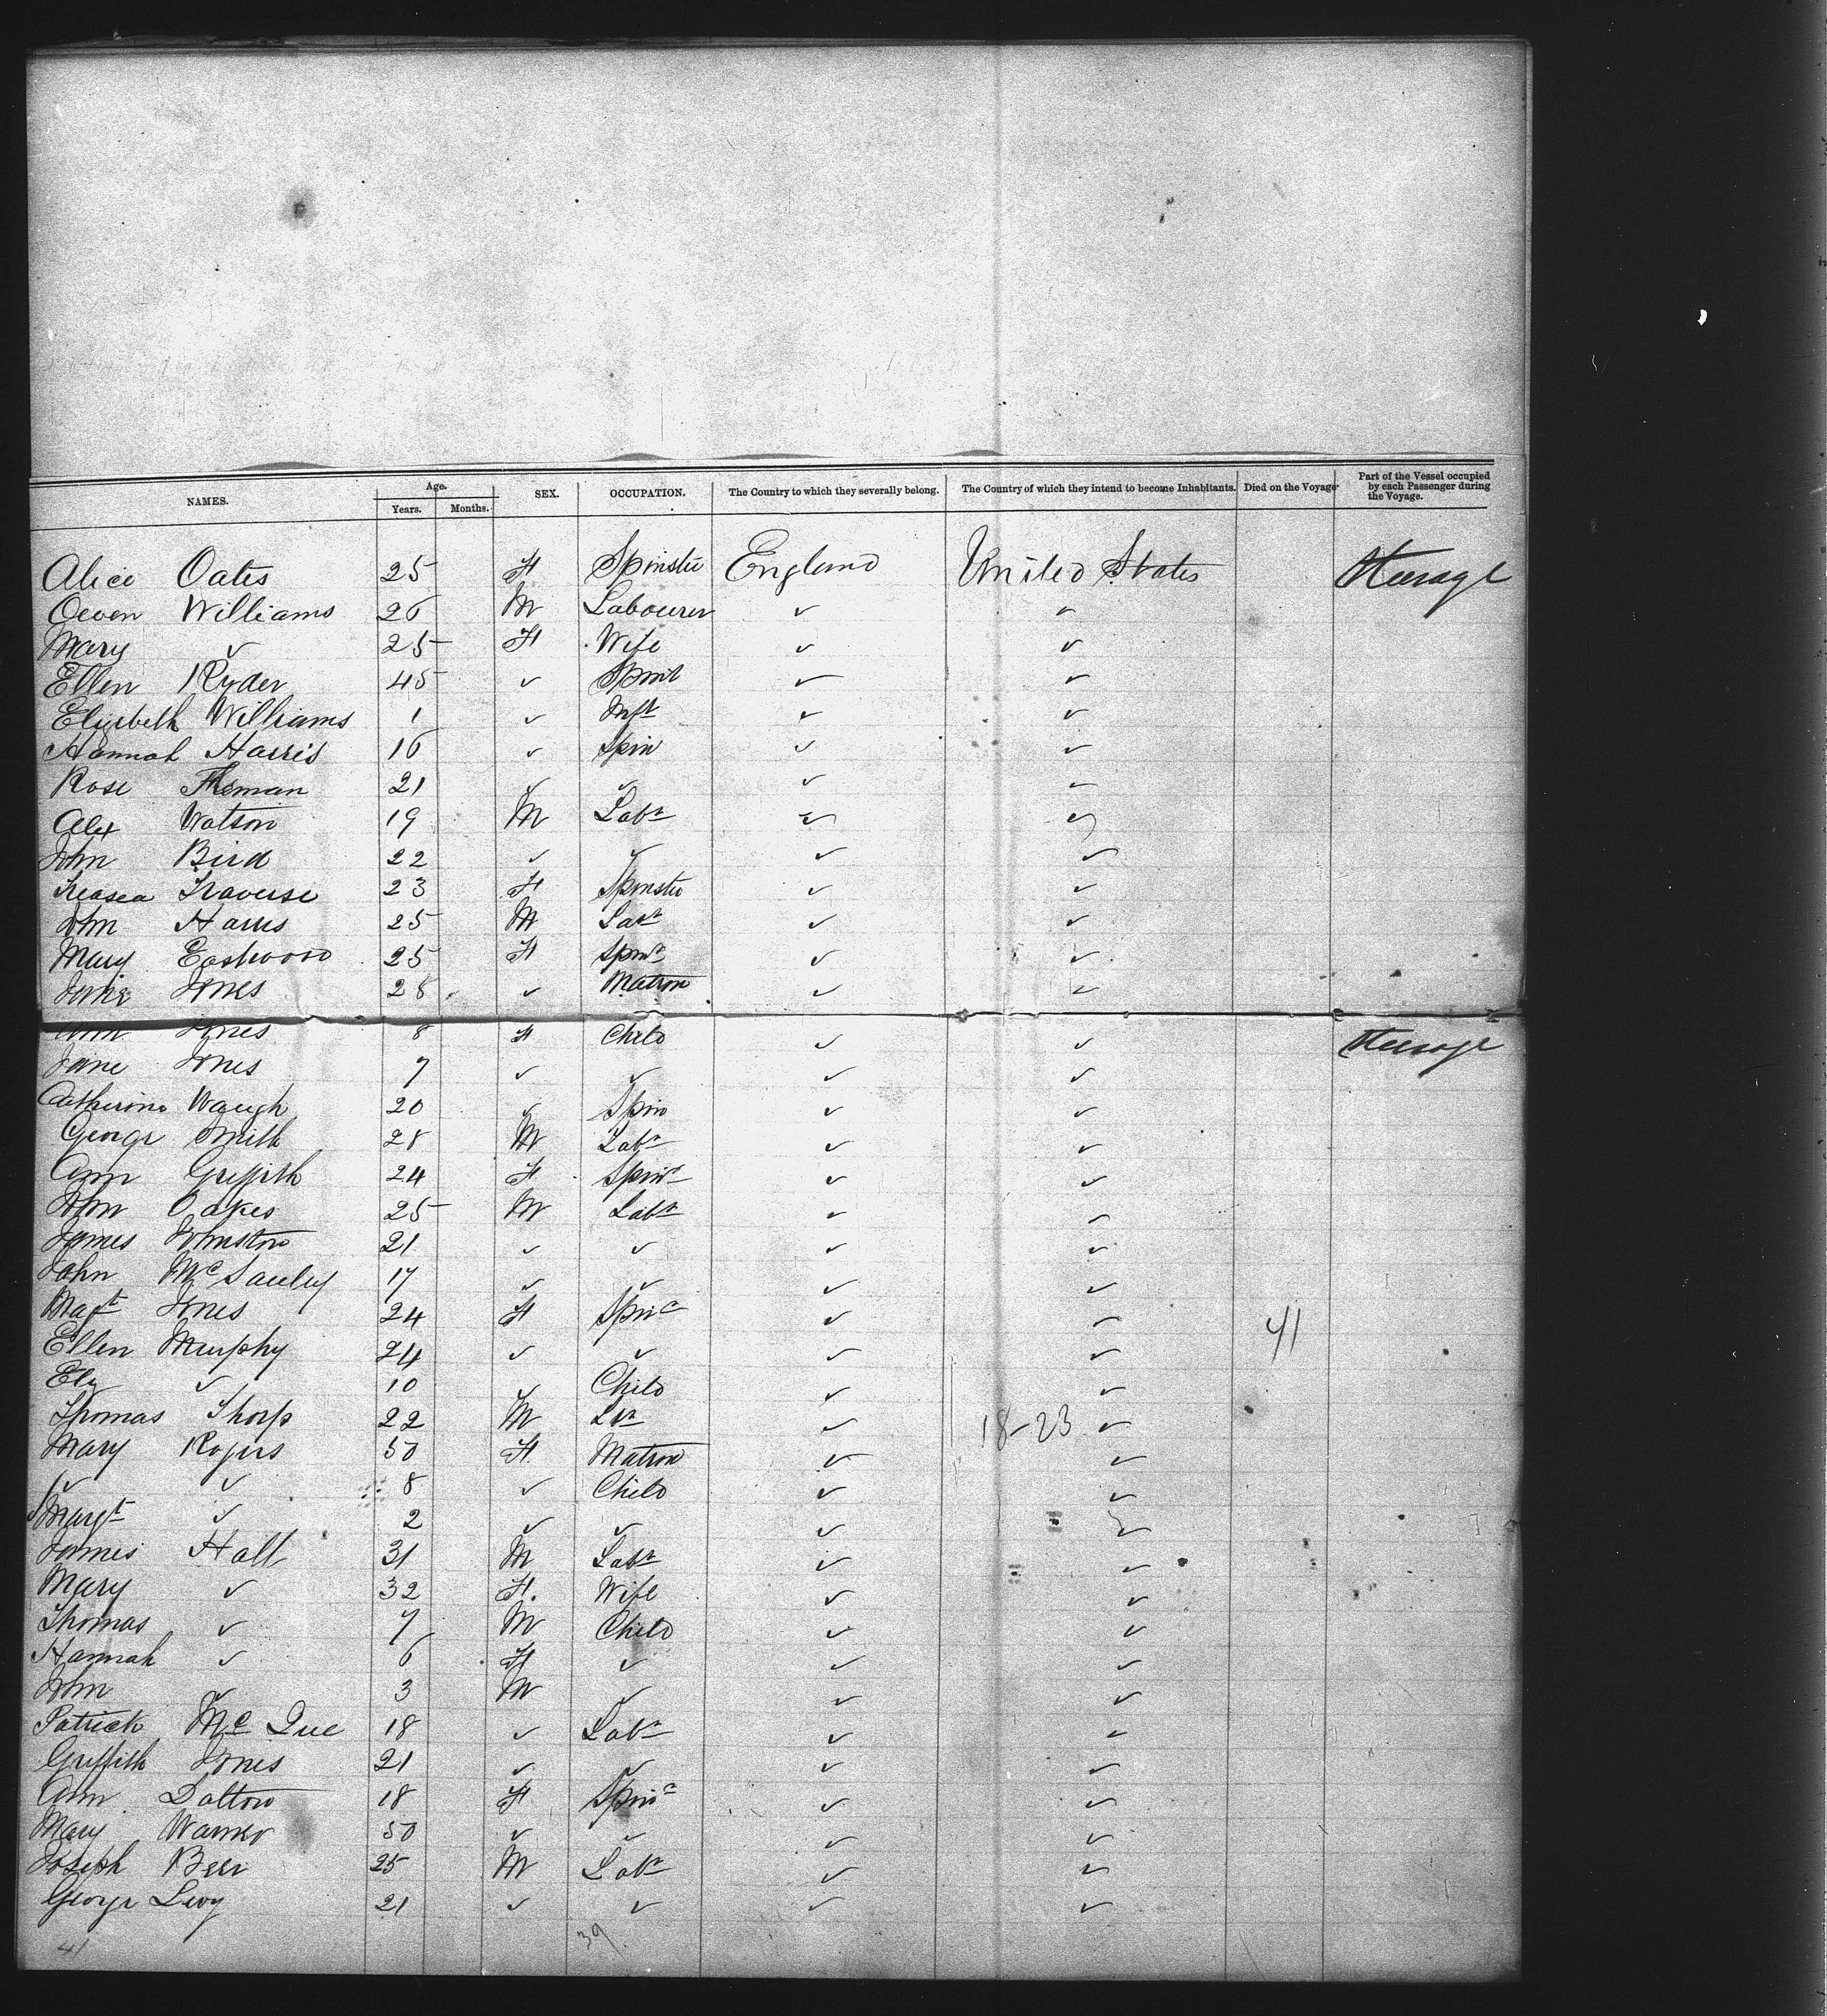 NAMES. Age. Years. Months. SEX. OCCUPATION. The Country to which they severally belong. The Country of which they intend to become Inhabitants. Died on the Voyage Part of the Vessel occupied by each Passenger during the Voyage.
Alice Oates 25 F Spinster England United States Steerage
Owen Williams 26 M Labourer ✓ ✓
Mary ✓ 25 F Wife ✓ ✓
Ellen Ryder 45 ✓ Spinst ✓ ✓
Elizebeth Williams 1 ✓ Inft ✓ ✓
Hannah Harris 16 ✓ Spin ✓ ✓
Rose 21 ✓ ✓ ✓ ✓
Alex Watson 19 M Labr ✓ ✓
John Bird 22 ✓ ✓ ✓ ✓
Treasea Traverse 23 F Spinster ✓ ✓
John Harris 25 M Labr ✓ ✓
Mary Eastwood 25 F Spinr ✓ ✓
Jane Jones 28 ✓ Matron ✓ ✓
Ann Jones 8 F Child ✓ ✓ Steerage
Jane Jones 7 ✓ ✓ ✓ ✓
Catherine Waugh 20 ✓ Spin ✓ ✓
George Smith 28 M Labr ✓ ✓
Ann Griffith 24 F Spinr ✓ ✓
John Oakes 25 M Labr ✓ ✓
James Johnston 21 ✓ ✓ ✓ ✓
John 17 ✓ ✓ ✓ ✓
Magt Jones 24 F Spinr ✓ ✓
Ellen Murphy 24 ✓ ✓ ✓ ✓ 41
Elz ✓ 10 ✓ Child ✓ ✓
Thomas Thorp 22 M Lbr ✓ 18-23 ✓
Mary Rogers 50 F Matron ✓ ✓
✓ ✓ 8 ✓ Child ✓ ✓
Margt ✓ 2 ✓ ✓ ✓ ✓
James Hall 31 M Labr ✓ ✓
Mary ✓ 32 F. Wife ✓ ✓
Thomas ✓ 7 M Child ✓ ✓
Hannah ✓ 6 F ✓ ✓ ✓
John ✓ 3 M ✓ ✓ ✓
Patrick Mc Que 18 ✓ Labr ✓ ✓
Griffith Jones 21 ✓ ✓ ✓ ✓
Ann Dalton 18 F Spinr ✓ ✓
Mary Warner 50 ✓ ✓ ✓ ✓
Joseph Beer 25 M Labr ✓ ✓
George Levy 21 ✓ ✓ ✓ ✓
41 39